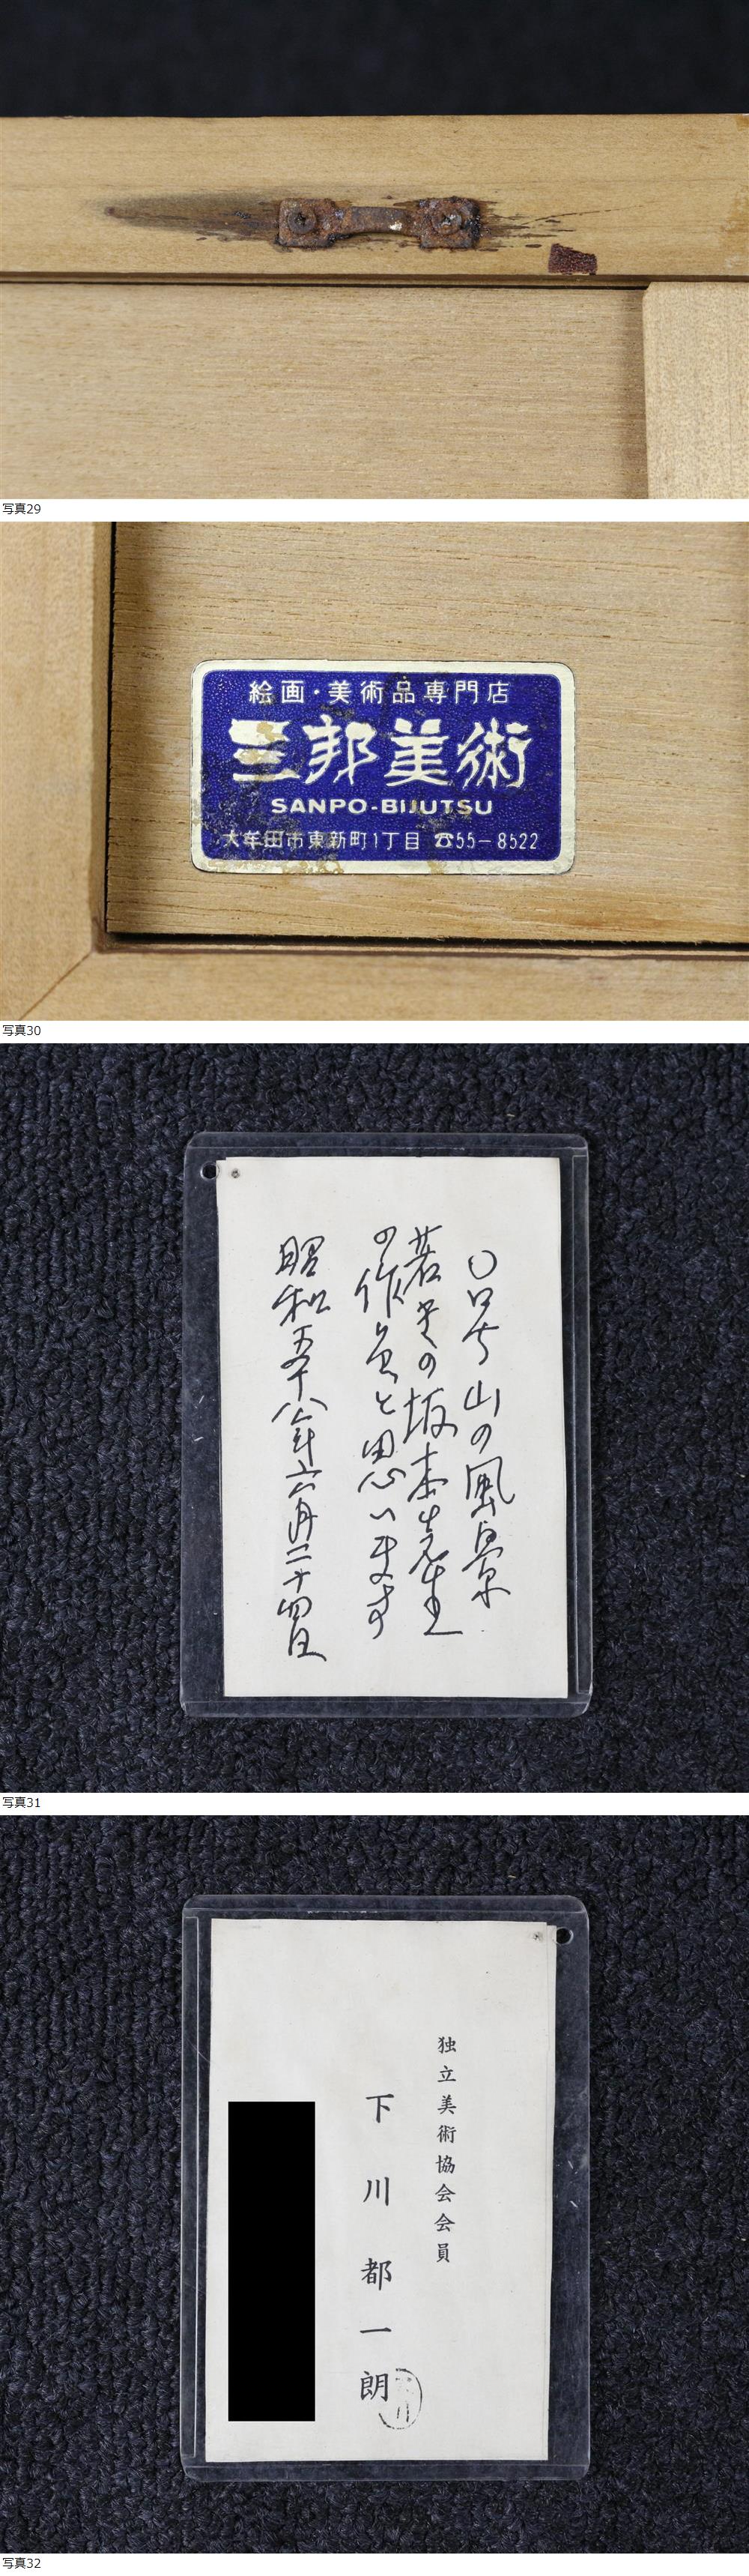 写真29
絵画・美術品専門店
三邦美術
SANPO-BIJUTSU
大牟田市東新町1丁目 ☎55-8522
写真30
〇号 山の風景
若き の坂本先生
の作品と思います
昭和五十八年六月二十四日
写真31
独立美術協会会員
下川都一朗
写真32